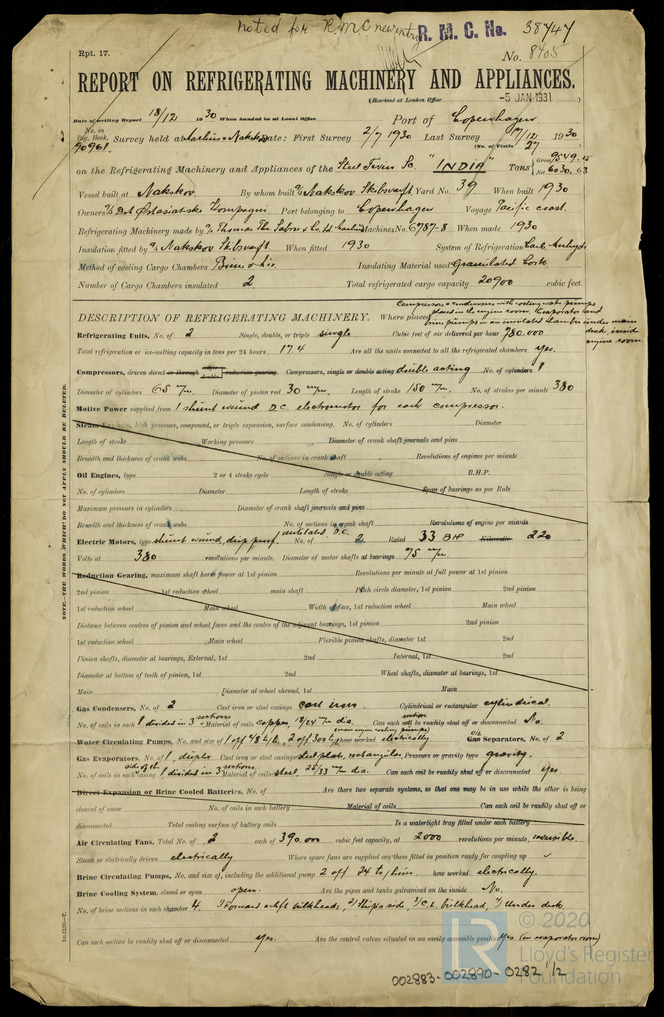 noted for RMC new entry
R. M. C. No. 38747
Rpt. 17.
No. 8405
REPORT ON REFRIGERATING MACHINERY AND APPLIANCES.
(Received at London Office -5 JAN 1931 )
Date of writing Report 18/12 1930 When handed in at Local Office Port of Copenhagen
No. in Reg. Book. 90961. Survey held at Aarhus & Nakskov Date: First Survey 2/7 1930 Last Survey 17/12 1930
(No. of Visits 27
on the Refrigerating Machinery and Appliances of the Steel Twin Sc. "INDIA" Tons Gross 9549.15 Net 6030.63
Vessel built at Nakskov By whom built Nakskov Skibsværft Yard No. 39 When built 1930
Owners Det Østasiatiske Kompagni Port belonging to Copenhagen Voyage Pacific coast.
Refrigerating Machinery made by Thomas Ths. Sabroe & Co. Ltd. Aarhus Machine No. 6787-8 When made 1930
Insulation fitted by Nakskov Skibsværft When fitted 1930 System of Refrigeration Carb. Anhydr.
Method of cooling Cargo Chambers Brine & Air Insulating Material used Granulated Cork
Number of Cargo Chambers insulated 2 Total refrigerated cargo capacity 20900 cubic feet.
DESCRIPTION OF REFRIGERATING MACHINERY. Where placed Compressors & condensers with cooling water pumps placed in the engine room. Evaporator and brine pumps in an insulated chamber under main deck inside engine room
Refrigerating Units, No. of 2 Single, double, or triple single Cubic feet of air delivered per hour 780.000
Total refrigeration or ice-melting capacity in tons per 24 hours 17.4 Are all the units connected to all the refrigerated chambers yes.
Compressors, driven direct or through reduction gearing. Compressors, single or double acting double acting No. of cylinders 1
Diameter of cylinders 65 m/m. Diameter of piston rod 30 m/m. Length of stroke 150 m/m. No. of strokes per minute 380
Motive Power supplied from 1 shunt wound D.C. electromotor for each compressor.
Steam Engines, high pressure, compound, or triple expansion, surface condensing. No. of cylinders Diameter
Length of stroke Working pressure Diameter of crank shaft journals and pins
Breadth and thickness of crank webs No. of sections in crank shaft Revolutions of engines per minute
Oil Engines, type 2 or 4 stroke cycle Single or double acting B.H.P.
No. of cylinders Diameter Length of stroke Span of bearings as per Rule
Maximum pressure in cylinders Diameter of crank shaft journals and pins
Breadth and thickness of crank webs No. of sections in crank shaft Revolutions of engine per minute
Electric Motors, type shunt wound, drip proof, ventilated D.C. No. of 2 Rated 33 BHP Kilowatts 220
Volts at 380 revolutions per minute. Diameter of motor shafts at bearings 75 m/m.
Reduction Gearing, maximum shaft horse power at 1st pinion Revolutions per minute at full power at 1st pinion
2nd pinion 1st reduction wheel main shaft Pitch circle diameter, 1st pinion 2nd pinion
1st reduction wheel Main wheel Width of face, 1st reduction wheel Main wheel
Distance between centres of pinion and wheel faces and the centre of the adjacent bearings, 1st pinion 2nd pinion
1st reduction wheel Main wheel Flexible pinion shafts, diameter 1st 2nd
Pinion shafts, diameter at bearings, External, 1st 2nd Internal, 1st 2nd
Diameter at bottom of teeth of pinion, 1st 2nd Wheel shafts, diameter at bearings, 1st
Main Diameter at wheel shroud, 1st Main
Gas Condensers, No. of 2 Cast iron or steel casings cast iron Cylindrical or rectangular cylindrical
No. of coils in each 1 divided in 3 sections Material of coils copper, 18/24 m/m dia. Can each section be readily shut off or disconnected No.
Water Circulating Pumps, No. and size of how worked electrically Oil Separators, No. of 2
Gas Evaporators, No. of 1, duplex Cast iron or steel casings steel plate, rectangular Pressure or gravity type gravity.
No. of coils in each side of the casing 1 divided in 3 sections Material of coils steel 25/33 m/m dia. Can each coil be readily shut off or disconnected yes.
Direct Expansion or Brine Cooled Batteries, No. of Are there two separate systems, so that one may be in use while the other is being
cleared of snow No. of coils in each battery Material of coils Can each coil be readily shut off or
disconnected Total cooling surface of battery coils Is a watertight tray fitted under each battery
Air Circulating Fans, Total No. of 2 each of 390.000 cubic feet capacity, at 2000 revolutions per minute, reversible
Steam or electrically driven electrically Where spare fans are supplied are these fitted in position ready for coupling up
Brine Circulating Pumps, No. and size of, including the additional pump 2 off 24 ts/hour how worked electrically.
Brine Cooling System, closed or open open. Are the pipes and tanks galvanised on the inside No.
No. of brine sections in each chamber 4. 1/ Forward & Aft bulkheads, 2/ Ships side, 3/ C.L. bulkhead, 4/ Under deck.
Can each section be readily shut off or disconnected yes. Are the control valves situated in an easily accessible position yes (in evaporator room)
NOTE.—THE WORDS WHICH DO NOT APPLY SHOULD BE DELETED.
© 2020
LR
Lloyd's Register
Foundation
002883-002890-0282 1/2